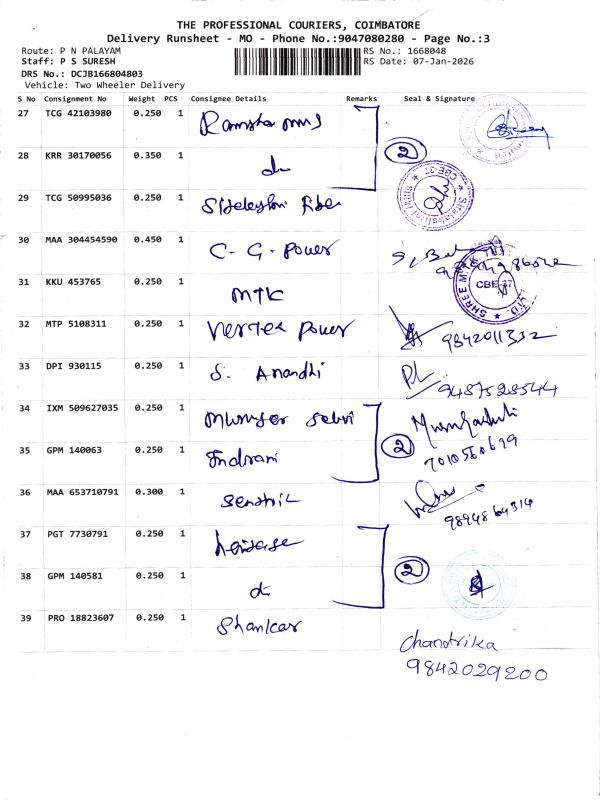 THE PROFESSIONAL COURIERS, COIMBATORE
Delivery Runsheet - MO - Phone No.:9047080280 - Page No.:3
Route: P N PALAYAM RS No.: 1668048
Staff: P S SURESH RS Date: 07-Jan-2026
DRS No.: DCJB166804803
Vehicle: Two Wheeler Delivery
S No Consignment No Weight PCS Consignee Details Remarks Seal & Signature
27 TCG 42103980 0.250 1
28 KRR 30170056 0.350 1 do 2
29 TCG 50995036 0.250 1
30 MAA 304454590 0.450 1 C. G. Power
31 KKU 453765 0.250 1 MTK SHREE M.T.K. CBE-37
32 MTP 5108311 0.250 1 Vertex Power 9842011332
33 DPI 930115 0.250 1 S. Anandhi 9487528544
34 IXM 509627035 0.250 1
35 GPM 140063 0.250 1 Indrani 2 7010560679
36 MAA 653710791 0.300 1 9894864314
37 PGT 7730791 0.250 1
38 GPM 140581 0.250 1 do 2
39 PRO 18823607 0.250 1 Shankar
Chandrika
9842029200